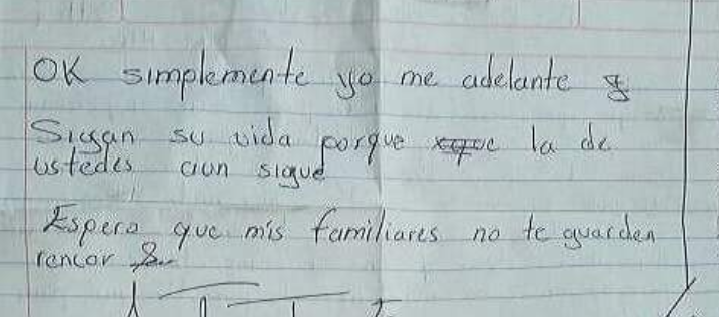 OK simplemente yo me adelante y
Sigan su vida porque la de
ustedes aun sigue
Espero que mis familiares no te guarden
rencor